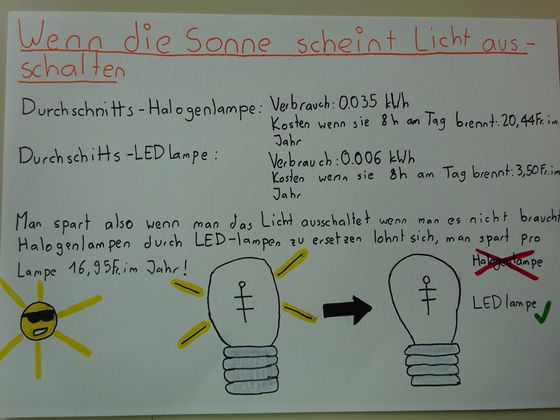 Wenn die Sonne scheint Licht aus-
schalten
Durchschnitts-Halogenlampe: Verbrauch: 0.035 kWh
Kosten wenn sie 8h am Tag brennt: 20,44Fr. im
Jahr
Durchschitts-LED lampe: Verbrauch: 0.006 kWh
Kosten wenn sie 8h am Tag brennt: 3,50Fr. im
Jahr
Man spart also wenn man das Licht ausschaltet wenn man es nicht braucht
Halogenlampen durch LED-lampen zu ersetzen lohnt sich, man spart pro
Lampe 16,95Fr. im Jahr!
Halogenlampe
LED lampe